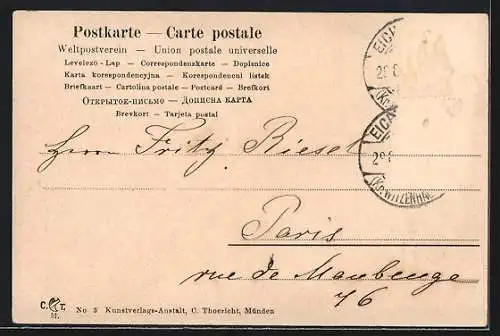 Postkarte — Carte postale
Weltpostverein — Union postale universelle
Levelező-Lap — Correspondenzkarte — Dopisnice
Karta korespondencyjna — Korespondencni listek
Briefkaart — Cartolina postale — Postcard — Brefkort
Открытое-письмо — Дописна карта
Brevkort — Tarjeta postal
EICH
29.
(Kr.
EICH
29.
(Kr. WITZENHA
Herrn Fritz Riesel
Paris
rue de Maubenge
76
C. T.
M.
No 3 Kunstverlags-Anstalt, C. Thoericht, Münden